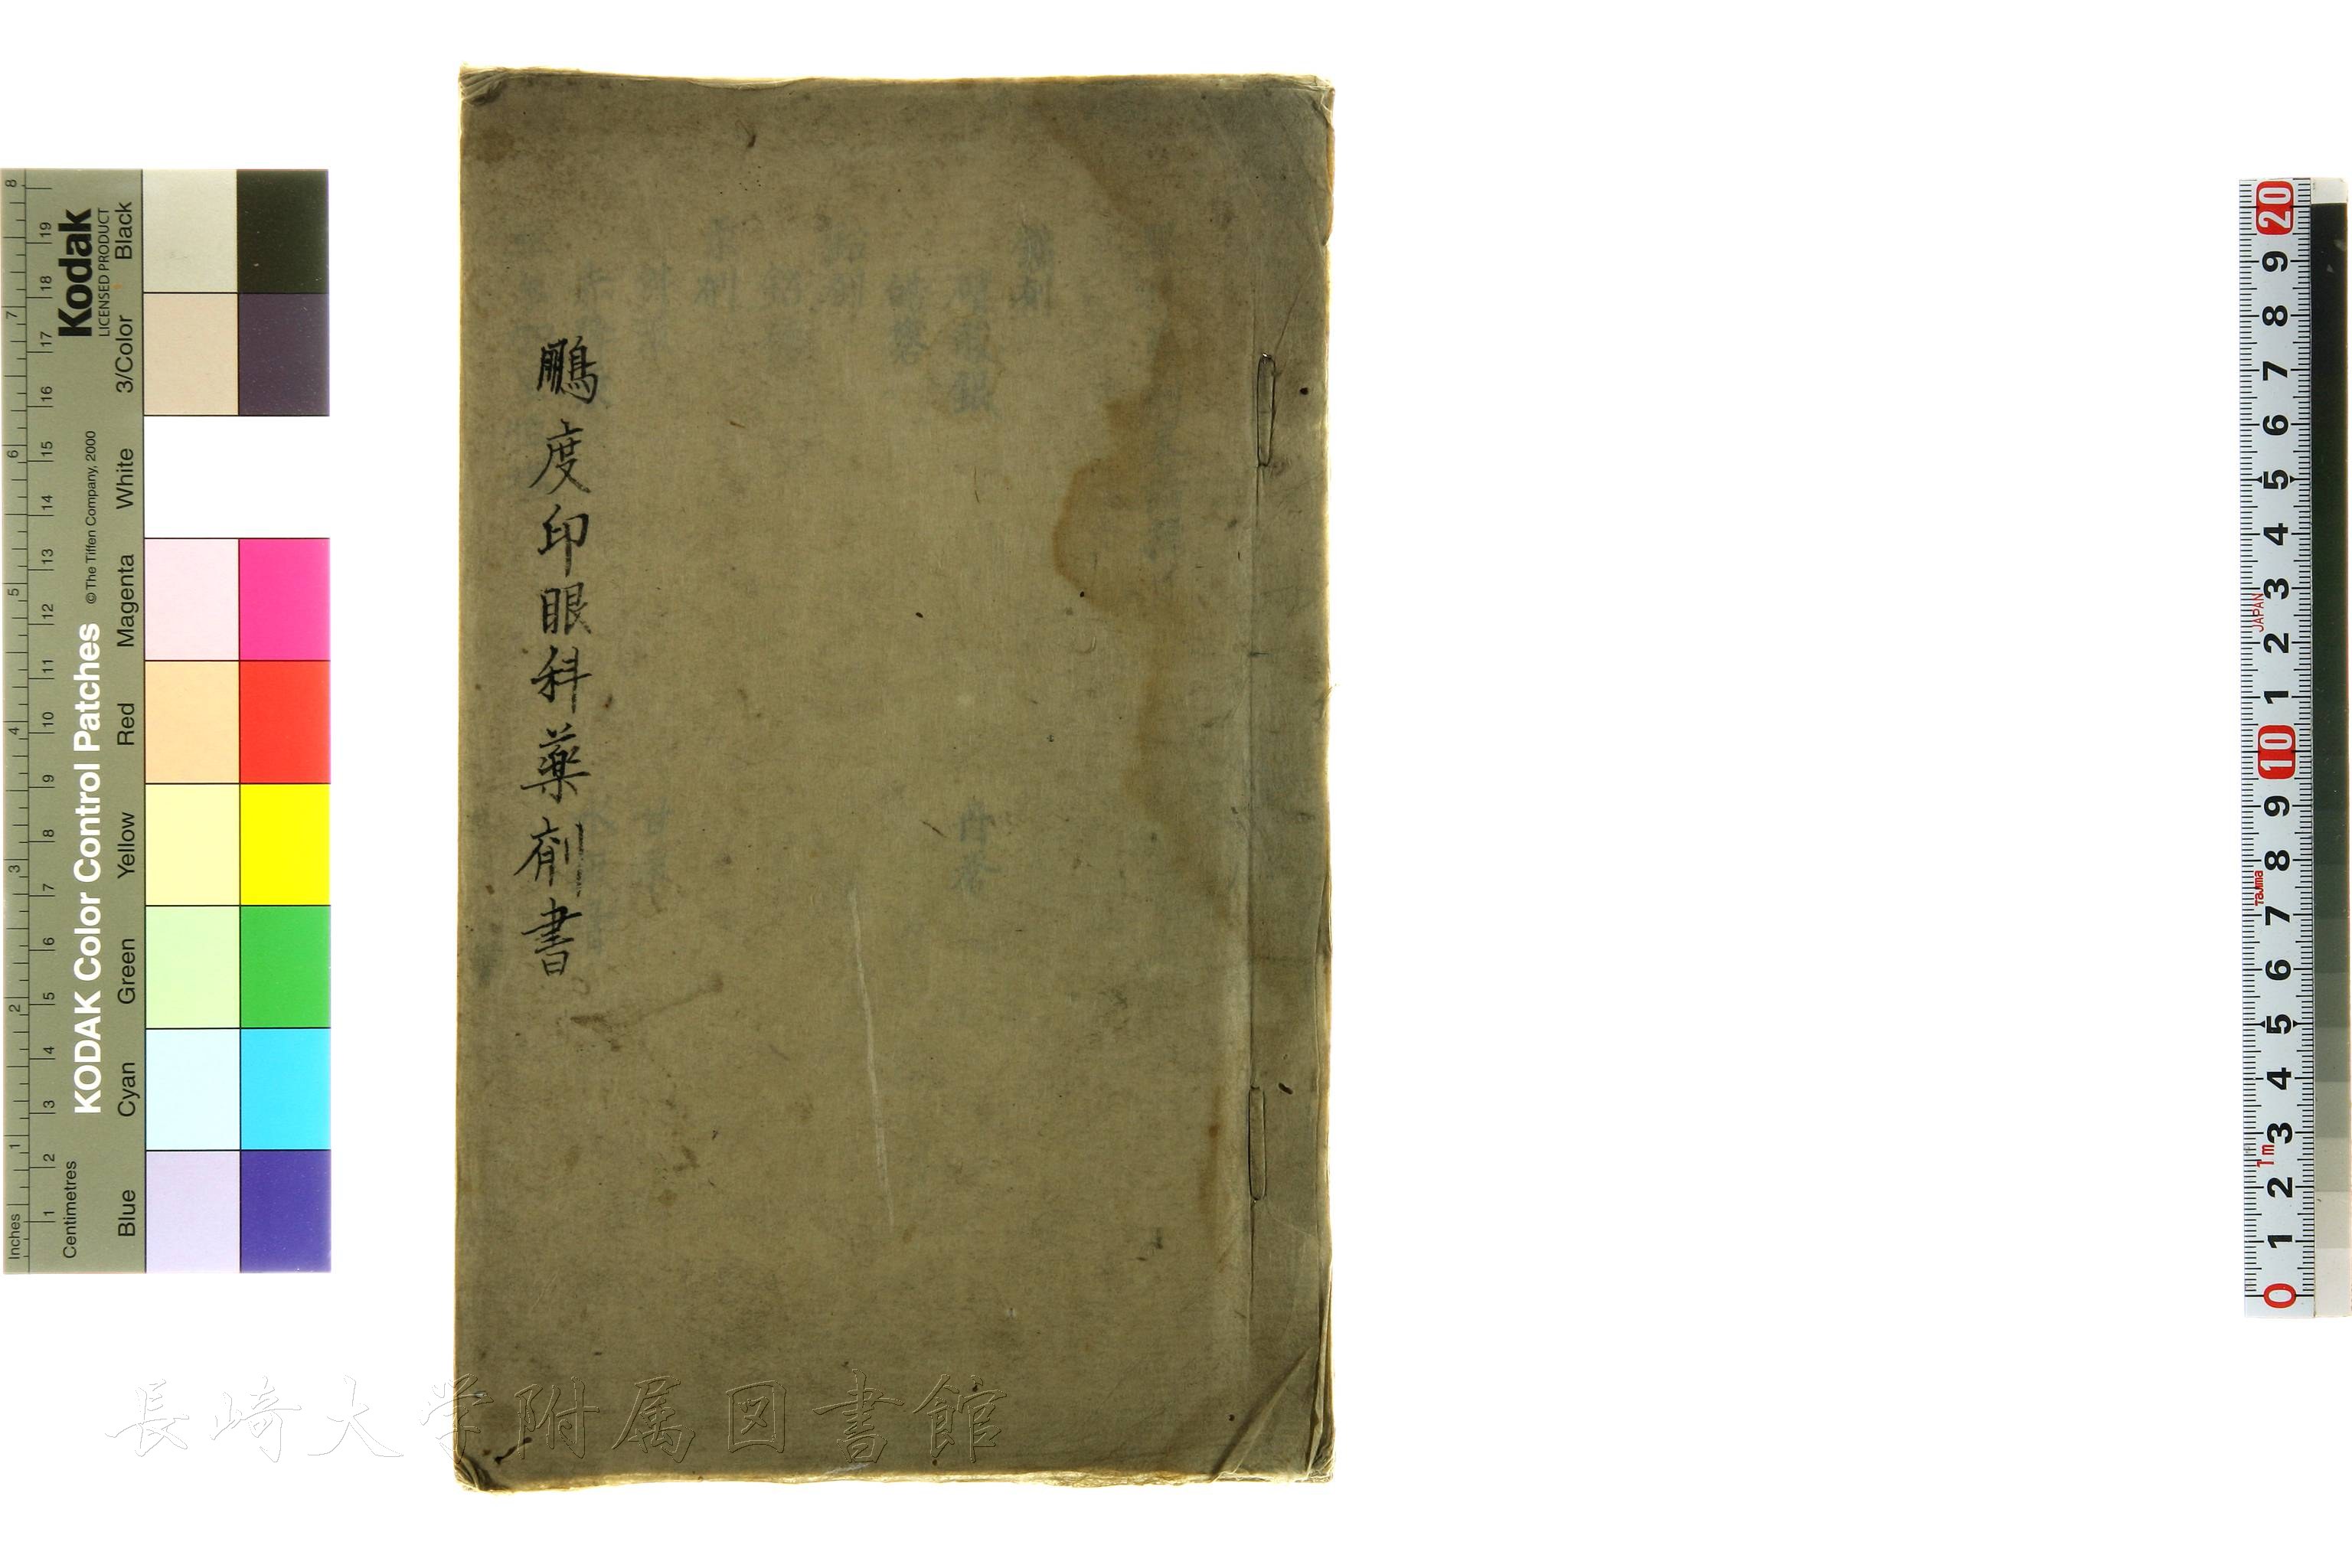 鵬度印眼科薬剤書
Kodak
LICENSED PRODUCT
KODAK Color Control Patches
© The Tiffen Company, 2000
Black
3/Color
White
Magenta
Red
Yellow
Green
Cyan
Blue
Inches
Centimetres
8 7 6 5 4 3 2 1
19 18 17 16 15 14 13 12 11 10 9 8 7 6 5 4 3 2 1
20 9 8 7 6 5 4 3 2 1 10 9 8 7 6 5 4 3 2 1 0
JAPAN
Tajima
1m
長崎大学附属図書館